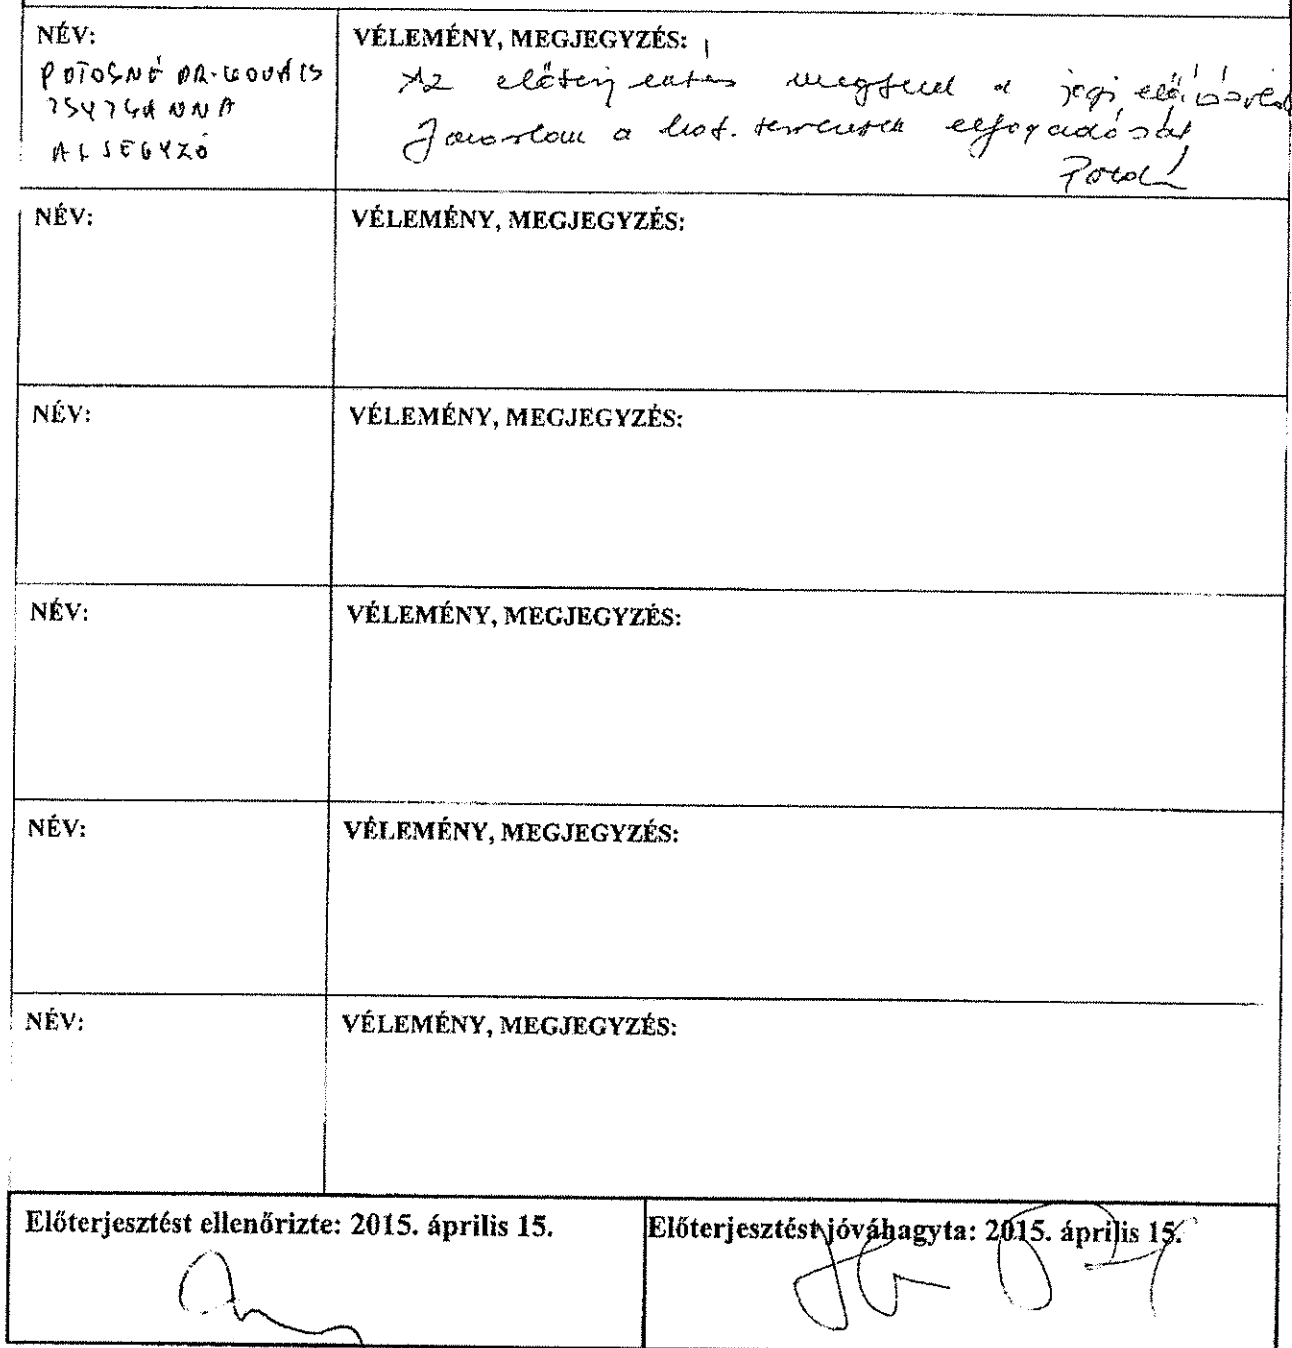 NÉV:
POTOSNÉ DR. KOVÁCS
ZSUZSANNA
ALJEGYZŐ
VÉLEMÉNY, MEGJEGYZÉS:
Az előterjesztés megfelel a jogi előírásoknak
Javaslom a hat. tervezetek elfogadását
NÉV:
VÉLEMÉNY, MEGJEGYZÉS:
NÉV:
VÉLEMÉNY, MEGJEGYZÉS:
NÉV:
VÉLEMÉNY, MEGJEGYZÉS:
NÉV:
VÉLEMÉNY, MEGJEGYZÉS:
NÉV:
VÉLEMÉNY, MEGJEGYZÉS:
Előterjesztést ellenőrizte: 2015. április 15.
Előterjesztést jóváhagyta: 2015. április 15.